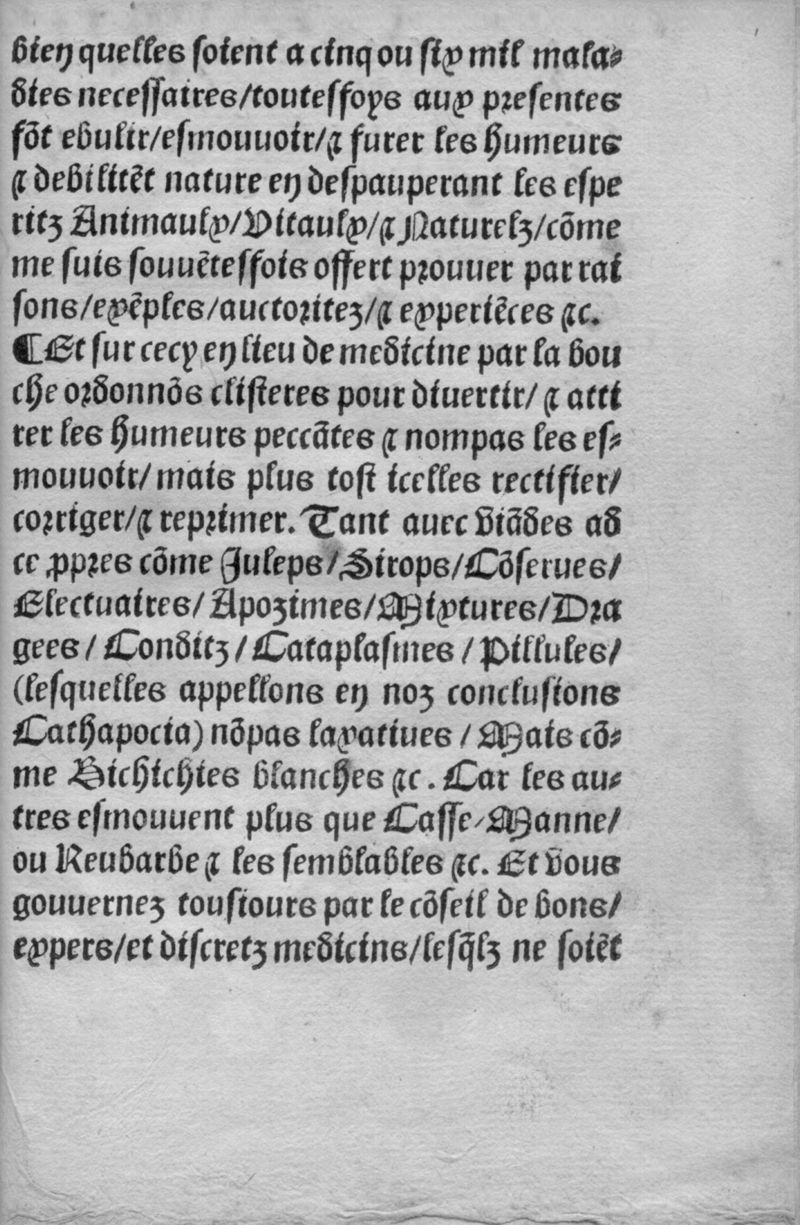 bien quelles soient a cinq ou six mil mala⸗
dies necessaires/toutesfoys aux presentes
fōt ebulir/esmouuoir/⁊ furer les humeurs
⁊ debilitēt nature en despauperant les espe
ritz Animaulx/Vitaulx/⁊ Naturelz/cōme
me suis souuētesfois offert prouuer par rai
sons/exēples/auctoritez/⁊ experiēces ⁊c.
¶Et sur cecy en lieu de medicine par la bou
che ordonnōs clisteres pour diuertir/ ⁊ atti
rer les humeurs peccātes ⁊ nompas les es⸗
mouuoir/ mais plus tost icelles rectifier/
corriger/⁊ reprimer. Tant auec viādes ad
ce ꝓpres cōme Juleps/Sirops/Cōserues/
Electuaires/ Apozimes/Mixtures/Dra
gees/ Conditz/ Cataplasmes / Pillules/
(lesquelles appellons en noz conclusions
Cathapocia) nōpas laxatiues / Mais cō⸗
me Bichichies blanches ⁊c. Car les au⸗
tres esmouuent plus que Casse/Manne/
ou Reubarbe ⁊ les semblables ⁊c. Et vous
gouuernez tousiours par le cōseil de bons/
expers/et discretz medicins/lesq̄lz ne soiēt